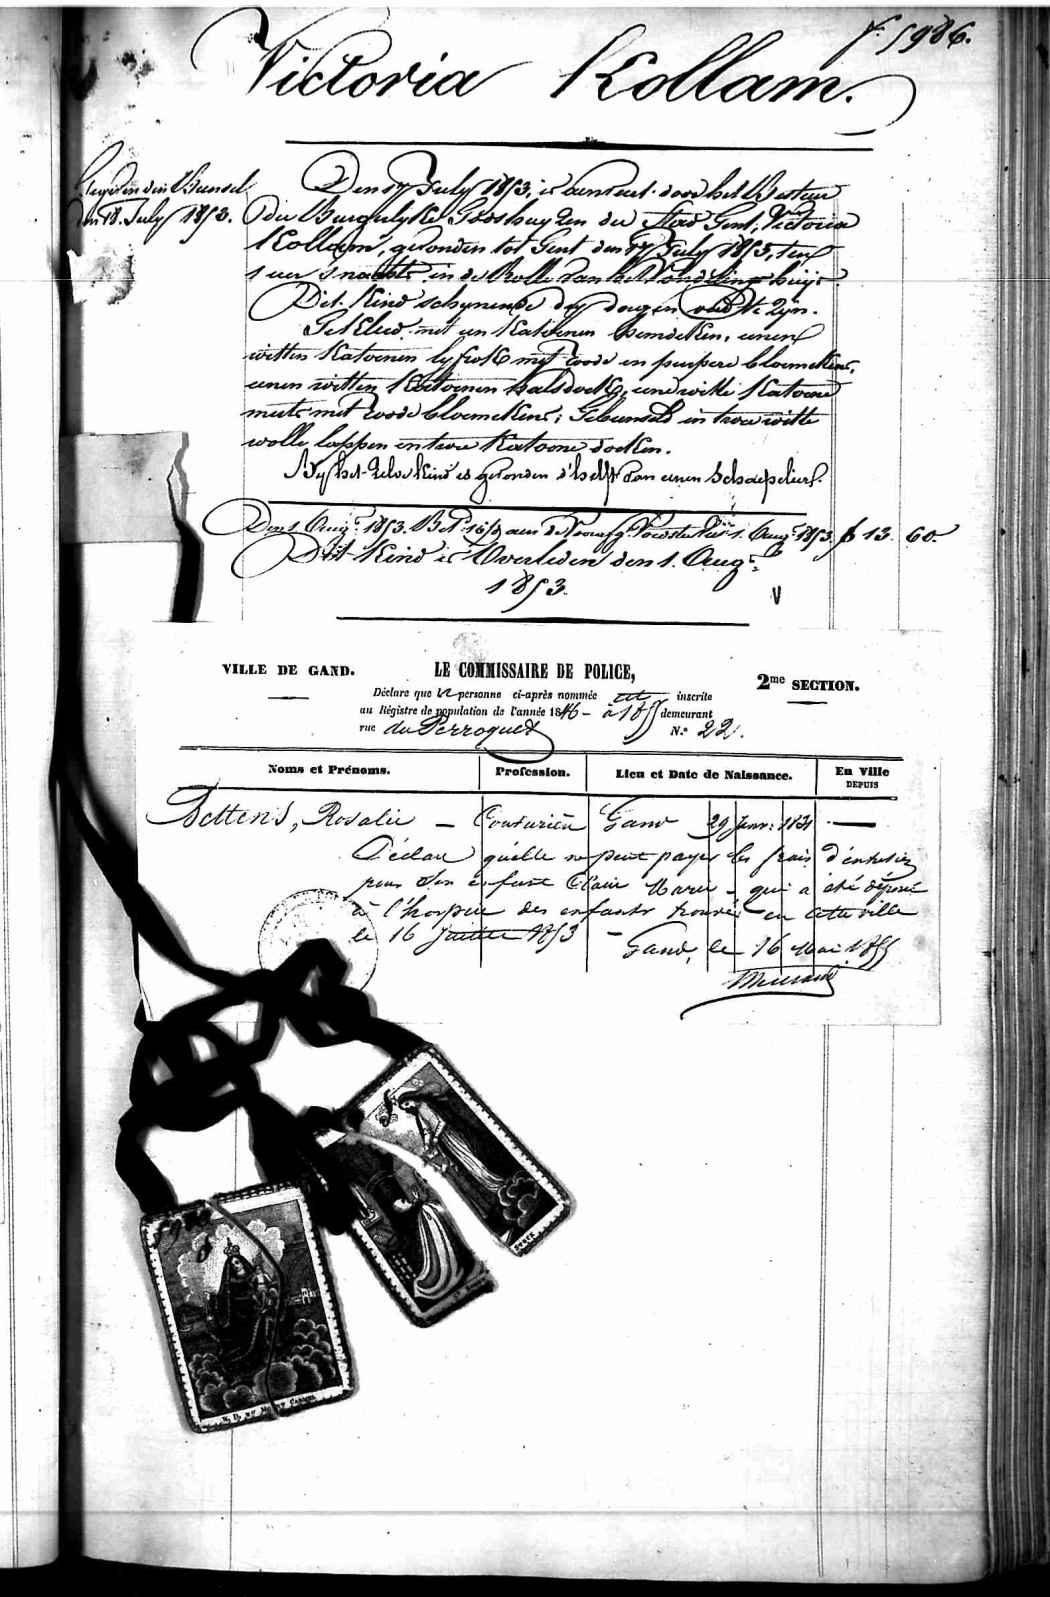 f. 5986.
Victoria Kollam.
den 18. July 1853.
Den 17 July 1853, is aenveerd door het Bestuer
der Burgerlyke Godshuyzen der Stad Gent, Victoria
Kollam, gevonden tot Gent den 17 July 1853, ten
1 uer s'nachts in de Rolle van het Vondelinghuys.
Dit Kind schynende dry dagen oud te zyn.
Gekleed met een Katoenen hemdeken, eenen
witten Katoenen lyfrok met roode en purpere bloemekens,
eenen witten Katoenen halsdoek, eene witte Katoene
muts met roode bloemekens; Gebunseld in twee witte
wolle lappen en twee Katoene doeken.
By het zelve Kind is gevonden d'helft van eenen schaepelier.
Den 1. Aug. 1853. Bet. aen de 1. Aug. 1853 f 13. 60.
Dit Kind is Overleden den 1. Aug.
1853.
V
VILLE DE GAND.
LE COMMISSAIRE DE POLICE,
2me SECTION.
Déclare que la personne ci-après nommée est inscrite
au Régistre de population de l'année 1846 - à 1855 demeurant
rue du Perroquet N.° 22.
Noms et Prénoms. Profession. Lieu et Date de Naissance. En Ville DEPUIS
Rosalie — Couturière Gand 29 Janv. 1831 —
Déclare qu'elle ne peut payer les frais d'entretien
pour son enfant Marie - qui a été déposé
à l'hospice des enfants trouvés en cette ville
le 16 Juillet 1853 -
Gand, le 16 Mai 1855
5986